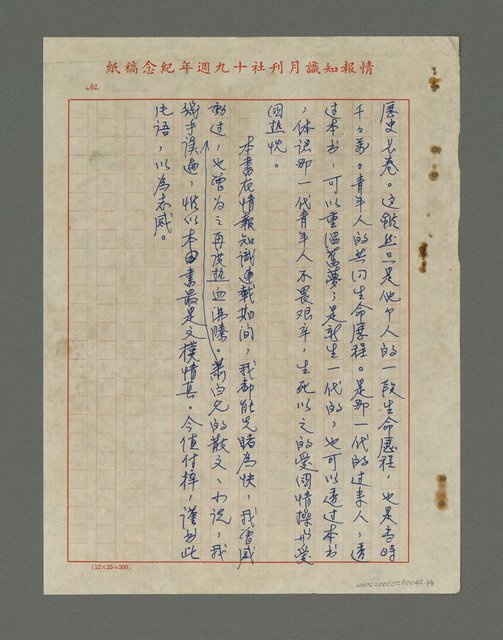 情報知識月刊社十九週年紀念稿紙
No.
歷史長卷。這雖然只是他個人的一段生命歷程，也是當時
千千萬萬青年人的共同生命歷程。是那一代的過來人，透
過本書，可以重溫舊夢；是新生一代的，也可以透過本書
，体認那一代青年人不畏艱辛，生死以之的愛國情操和愛
國熱忱。
本書在情報知識連載期間，我都能先睹為快，我曾感
動過，也曾為之再度熱血沸騰。蕭白兄的散文、小說，我
幾乎讀遍，惟以本書最是文樸情真。今值付梓，謹書此
話，以為誌感。
(12×25=300)
NMTL20060260042